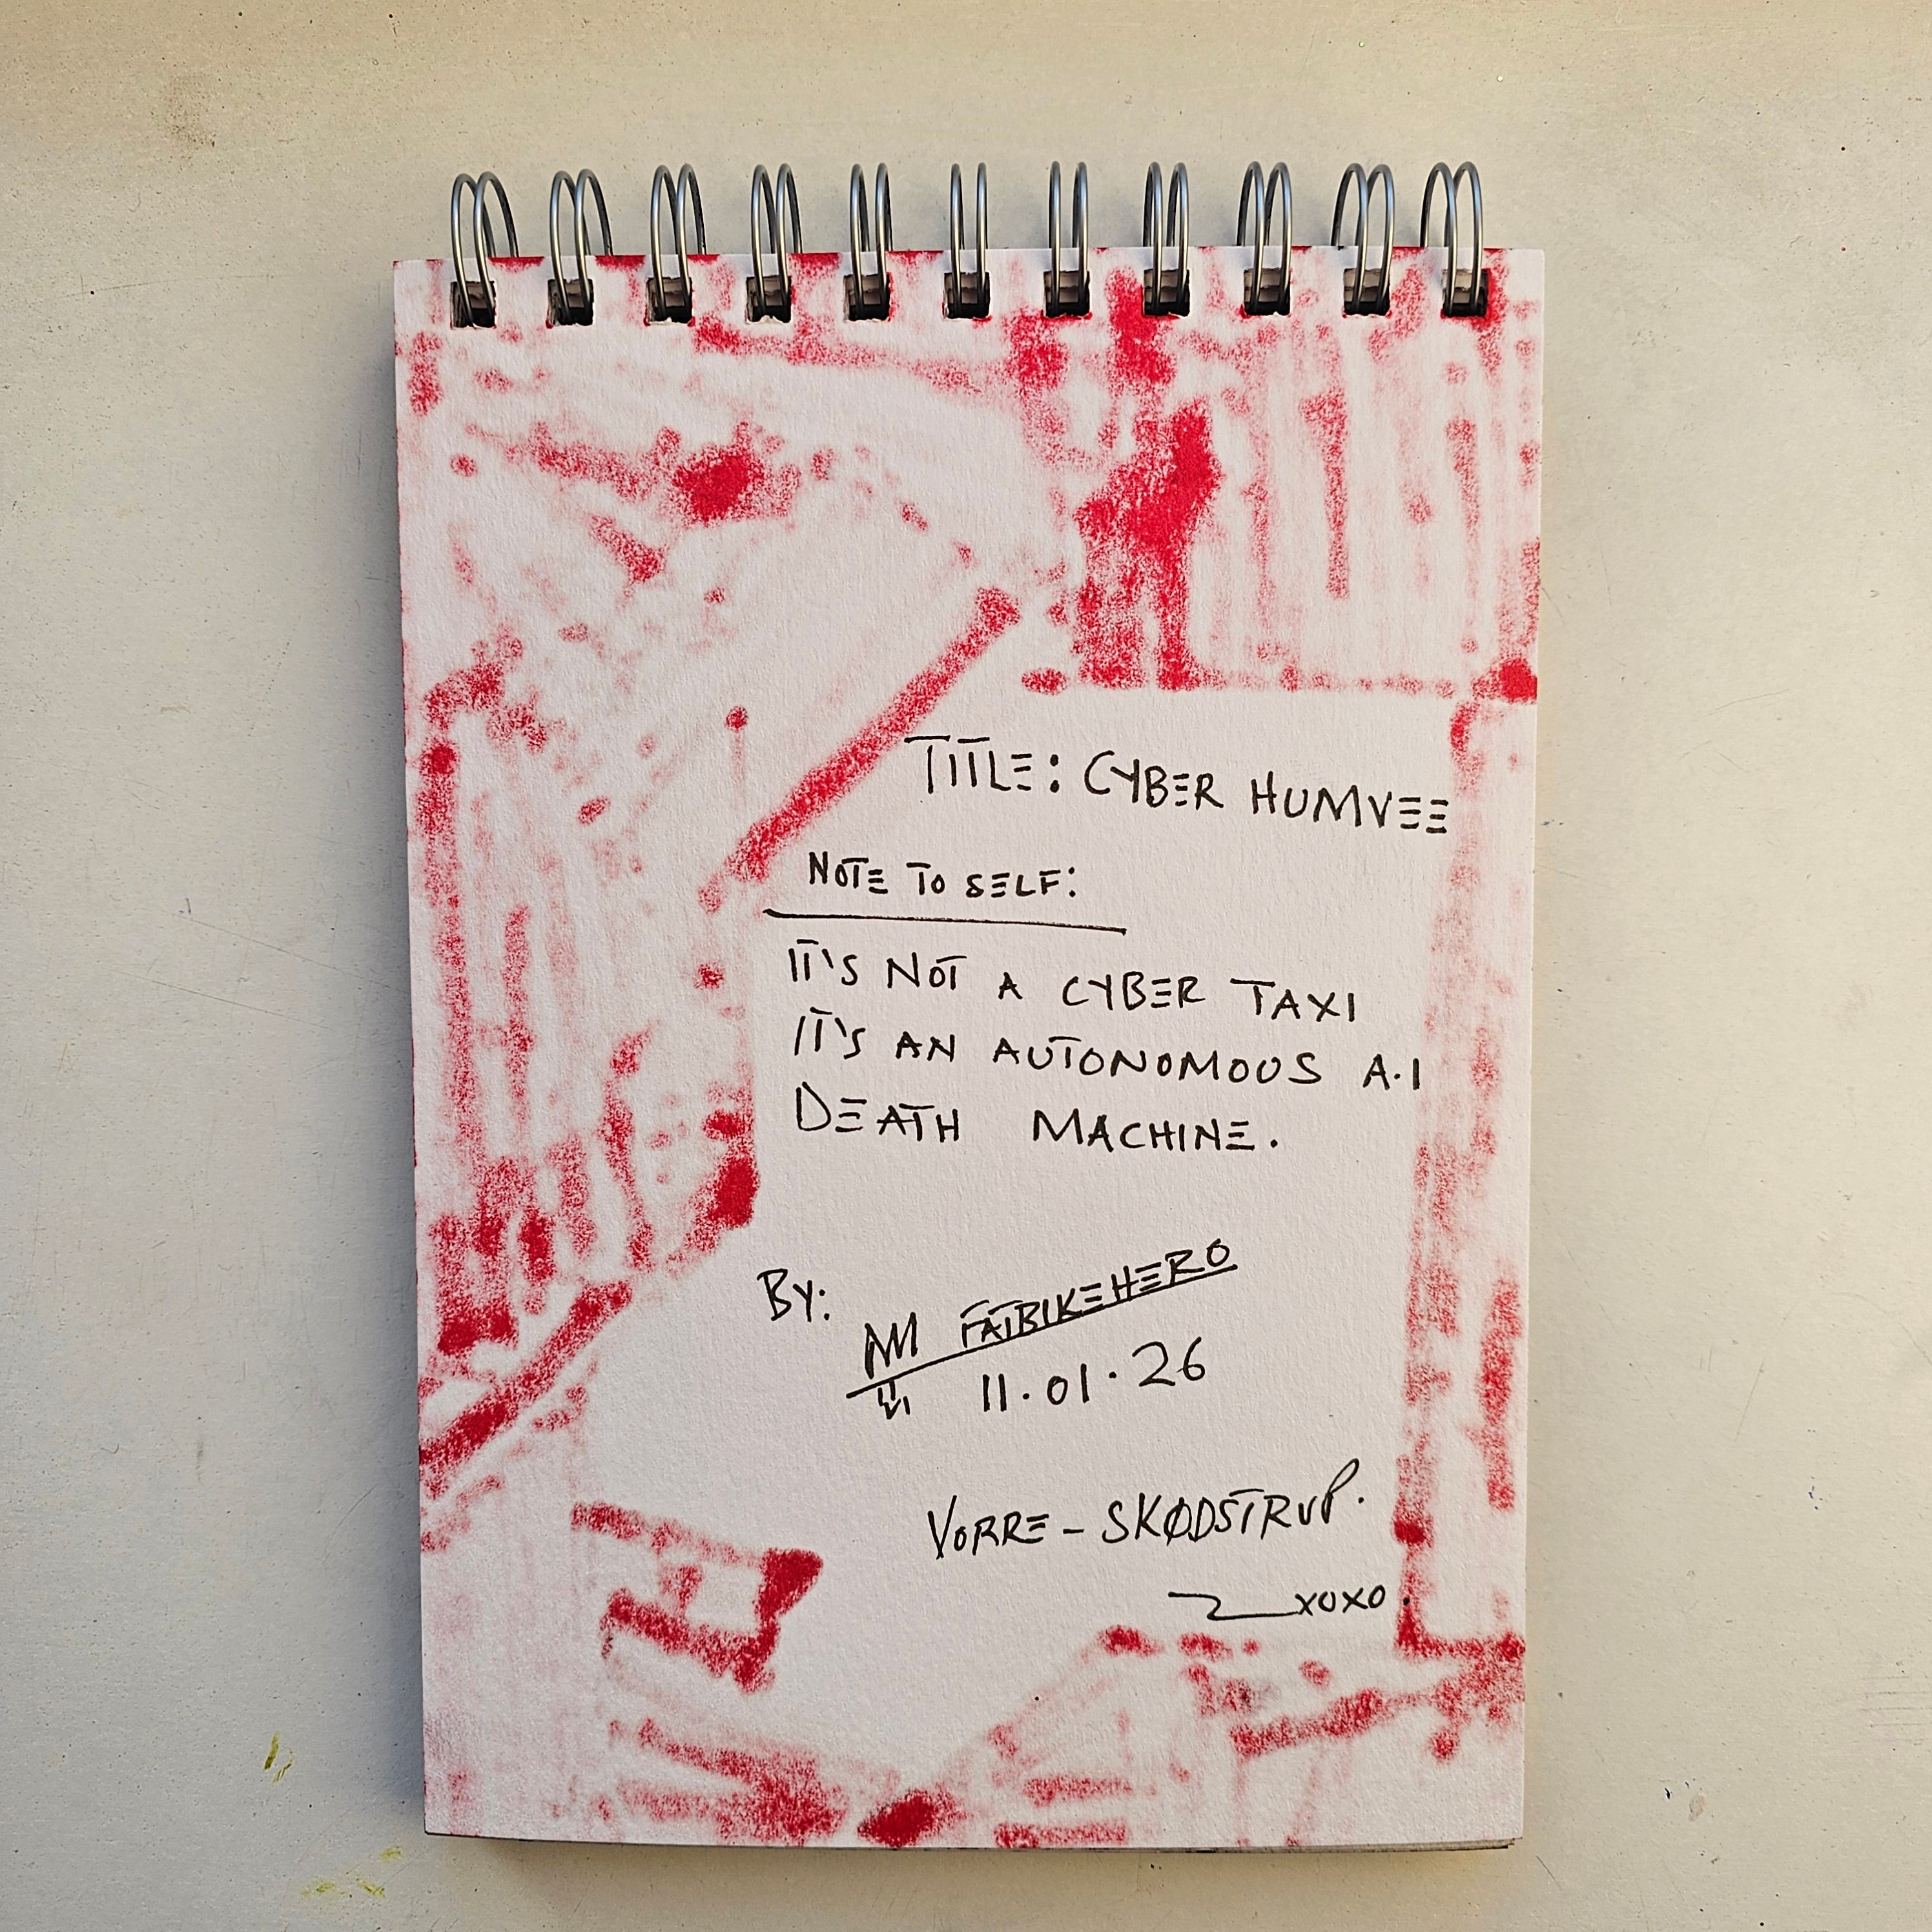 TITLE: CYBER HUMVEE
NOTE TO SELF:
IT'S NOT A CYBER TAXI
IT'S AN AUTONOMOUS A.I
DEATH MACHINE.
BY:
FATBIKEHERO
11.01.26
VORRE - SKØDSTRUP.
XOXO.